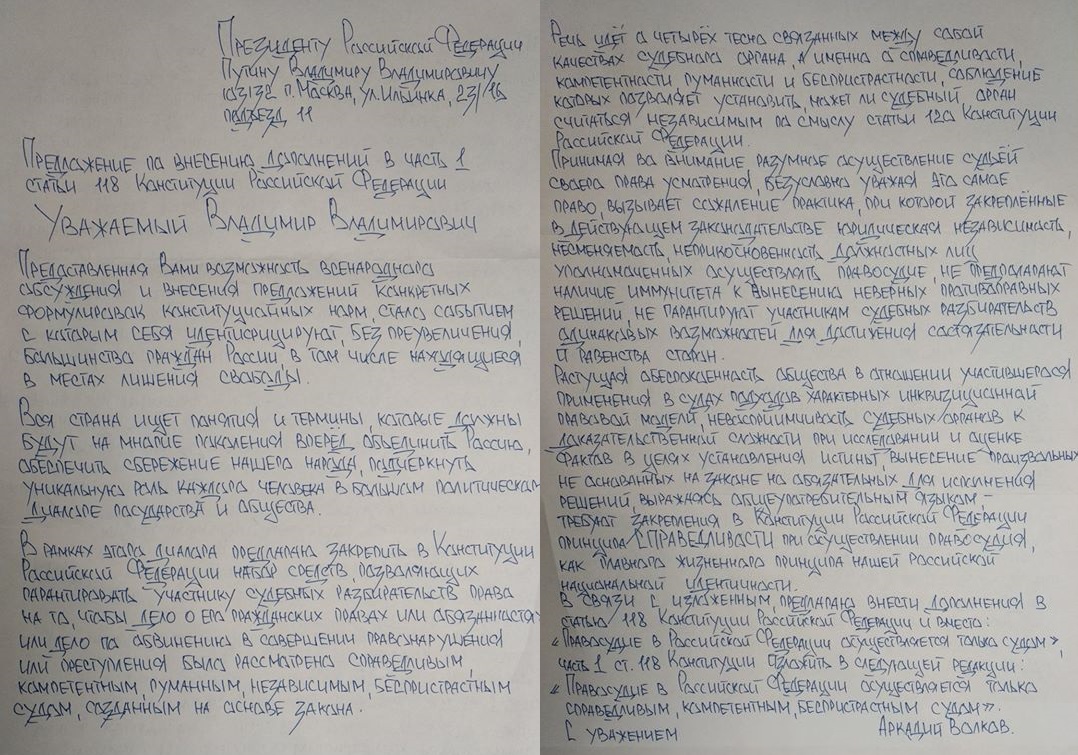 Президенту Российской Федерации
Путину Владимиру Владимировичу
103132 г. Москва, ул. Ильинка, 23/16
подъезд 11
Предложение по внесению дополнений в часть 1
статьи 118 Конституции Российской Федерации
Уважаемый Владимир Владимирович
Предоставленная Вами возможность всенародного
обсуждения и внесения предложений конкретных
формулировок конституционных норм, стало событием
с которым себя идентифицируют, без преувеличения,
большинство граждан России, в том числе находящиеся
в местах лишения свободы.
Вся страна ищет понятия и термины, которые должны
будут на многие поколения вперёд объединить Россию,
обеспечить сбережение нашего народа, подчеркнуть
уникальную роль каждого человека в большом политическом
диалоге государства и общества.
В рамках этого диалога предлагаю закрепить в Конституции
Российской Федерации набор средств, позволяющих
гарантировать участнику судебных разбирательств права
на то, чтобы дело о его гражданских правах или обязанностях
или дело по обвинению в совершении правонарушения
или преступления было рассмотрено справедливым,
компетентным, гуманным, независимым, беспристрастным
судом, созданным на основе закона.
Речь идёт о четырёх тесно связанных между собой
качествах судебного органа, а именно о справедливости,
компетентности гуманности и беспристрастности, соблюдение
которых позволяет установить, может ли судебный орган
считаться независимым по смыслу статьи 120 Конституции
Российской Федерации.
Принимая во внимание разумное осуществление судьёй
своего права усмотрения, безусловно уважая это самое
право, вызывает сожаление практика, при которой закреплённые
в действующем законодательстве юридическая независимость,
несменяемость, неприкосновенность должностных лиц
уполномоченных осуществлять правосудие, не предполагают
наличие иммунитета к вынесению неверных противоправных
решений, не гарантируют участникам судебных разбирательств
одинаковых возможностей для достижения состязательности
и равенства сторон.
Растущая обеспокоенность общества в отношении участившегося
применения в судах подходов характерных инквизиционной
правовой модели, невосприимчивость судебных органов к
доказательственной сложности при исследовании и оценке
фактов в целях установления истины, вынесение произвольных
не основанных на законе но обязательных для исполнения
решений, выражаясь общеупотребительным языком –
требуют закрепления в Конституции Российской Федерации
принципа СПРАВЕДЛИВОСТИ при осуществлении правосудия,
как главного жизненного принципа нашей Российской
национальной идентичности.
В связи с изложенным, предлагаю внести дополнения в
статью 118 Конституции Российской Федерации и вместо:
«Правосудие в Российской Федерации осуществляется только судом»,
часть 1 ст. 118 Конституции изложить в следующей редакции:
«Правосудие в Российской Федерации осуществляется только
справедливым, компетентным, беспристрастным судом».
С уважением Аркадий Волков.